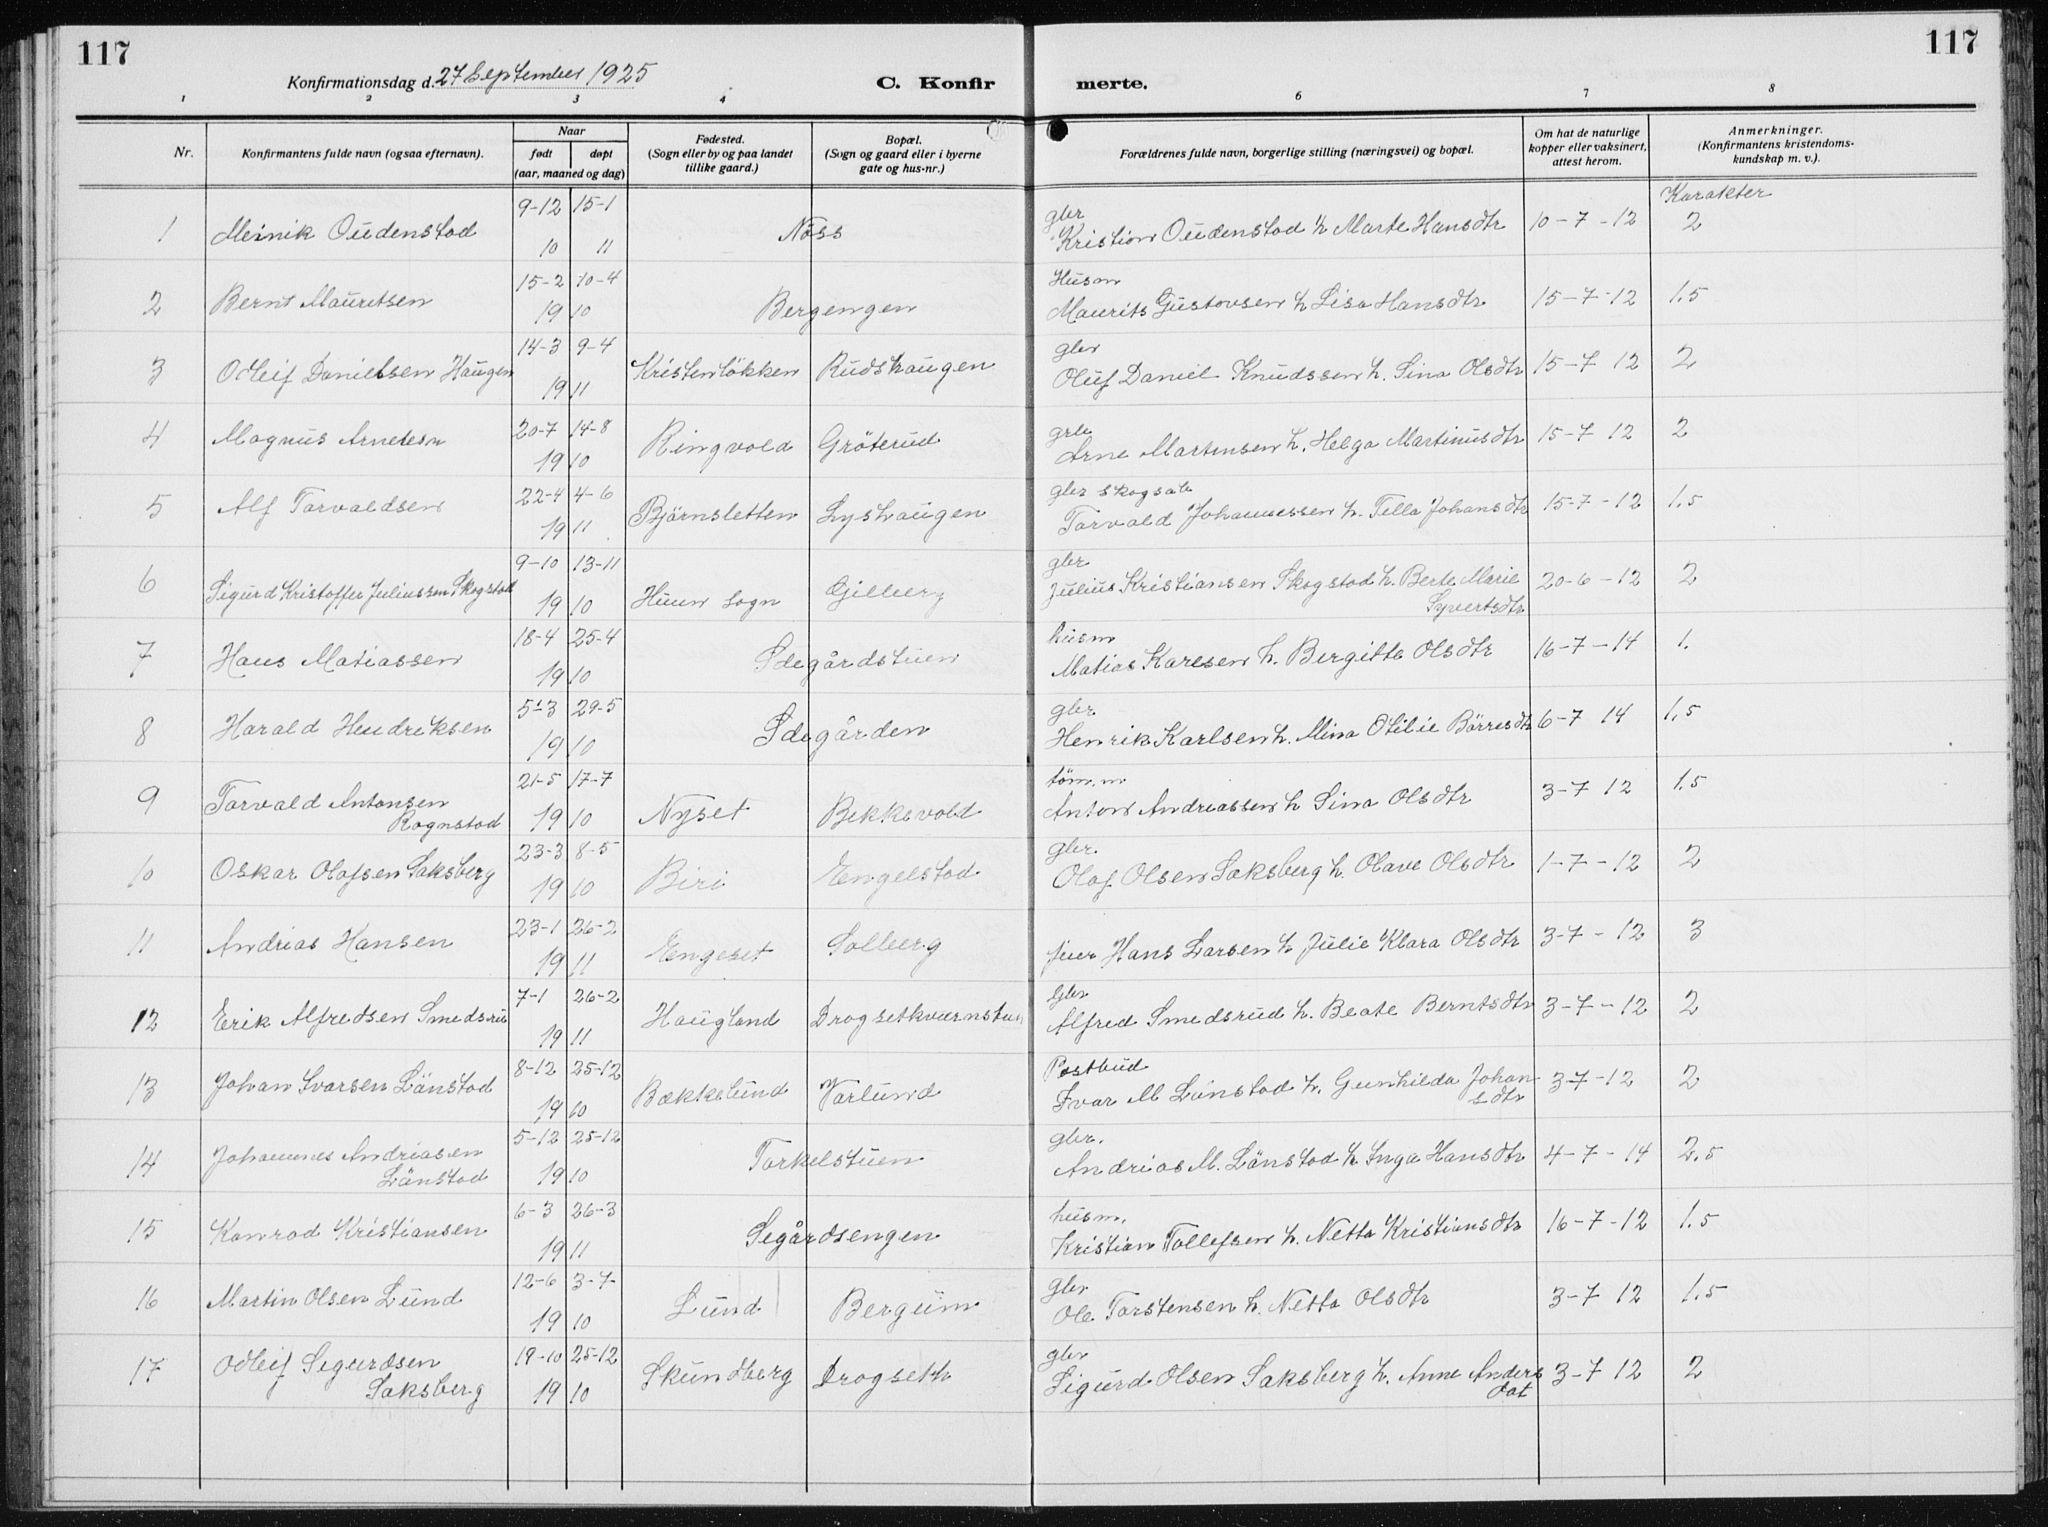 117
117
Konfirmationsdag d. 27 September 1925
C. Konfir
merte.
1 2 3 4 6 7 8
Nr.
Konfirmantens fulde navn (ogsaa efternavn).
Naar
født
døpt
(aar, maaned og dag)
Fødested.
(Sogn eller by og paa landet
tillike gaard.)
Bopæl.
(Sogn og gaard eller i byerne
gate og hus-nr.)
Forældrenes fulde navn, borgerlige stilling (næringsvei) og bopæl.
Om hat de naturlige
kopper eller vaksinert,
attest herom.
Anmerkninger.
(Konfirmantens kristendoms-
kundskap m. v.).
Karakter
9-12 15-1 gbr
1 Meinik Oudenstad 10 11 Nøss Kristian Oudenstad h Marte Hansdtr 10-7-12 2
15-2 10-4 Husm
2 Bernt Mauritsen 19 10 Bergengen Maurits Gustavsen h Lisa Hansdtr 15-7-12 1.5
14-3 9-4 gbr
3 Odleif Danielsen Haugen 19 11 Kristenløkken Rudshaugen Oluf Daniel Knudssen h. Sina Olsdtr 15-7 12 2
20-7 14-8
4 Magnus Arnesen 19 10 Ringvold Gröterud Arne Martinsen h. Helga Martinusdtr 15-7 12 2
22-4 4-6 gbr skogsarb
5 Alf Torvaldsen 19 11 Björnsletten Lyshaugen Torvald Johannessen h. Tella Johansdtr 15-7-12 1.5
9-10 13-11 gbr
6 Sigurd Kristoffer Juliussen Skogstad 19 10 Hunn sogn Gilberg Julius Kristiansen Skogstad h. Berte Marie 20-6-12 2
Syvertsdtr
18-4 25-4 husm
7 Hans Matiassen 19 10 Idegårdstuen Matias Karlsen h. Bergitte Olsdtr 16-7-14 1.
5-3 29-5 gbr
8 Harald Hendriksen 19 10 Idegården Henrik Karlsen h. Mina Otilie Börresdtr 6-7 14 1.5
21-5 17-7 töm.m
9 Torvald Antonsen 19 10 Nyset Bekkevold Anton Andreassen h Sina Olsdtr 3-7 12 1.5
Rognstad
23-3 8-5 gbr.
10 Oskar Olafsen Saksberg 19 10 Biri Engelstad Olaf Olsen Saksberg h. Olave Olsdtr 1-7-12 2
23-1 26-2
11 Andrias Hansen 19 11 Engeset Solberg Hans Larsen h Julie Klara Olsdtr 3-7-12 3
7-1 26-2 Gbr
12 Erik Alfredsen Smedsrud 19 11 Haugland Drogsetkværnstuen Alfred Smedsrud h. Beate Berntsdtr 3-7-12 2
8-12 25-12 Postbud
13 Johan Ivarsen Lönstad 19 10 Bækkelund Varlund Ivar M Lönstad h. Gunhilda Johan- 3-7-12 2
sdtr
5-12 25-12 gbr.
14 Johannes Andriasen 19 10 Torkelstuen Andrias M. Lönstad h Inga Hansdtr 4-7-14 2.5
Lönstad
6-3 26-3 husm.
15 Konrad Kristiansen 19 11 Segårdsengen Kristian Tollefsen h. Netta Kristiansdtr 16-7-12 1.5
12-6 3-7- gbr
16 Martin Olsen Lund 19 10 Lund Bergum Ole Torstensen h. Netta Olsdtr 3-7 12 1.5
19-10 25-12 gbr
17 Odleif Sigurdsen 19 10 Skundberg Drogseth Sigurd Olsen Saksberg h. Anne Anders 3-7 12 2
Saksberg dat